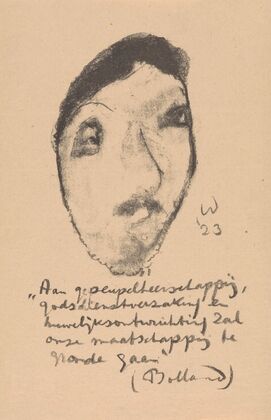 W
'23
"Aan gepeupelheerschappij,
godsdienstverzaking en
huwelijksontwrichting zal
onze maatschappij te
gronde gaan"
(Bolland)